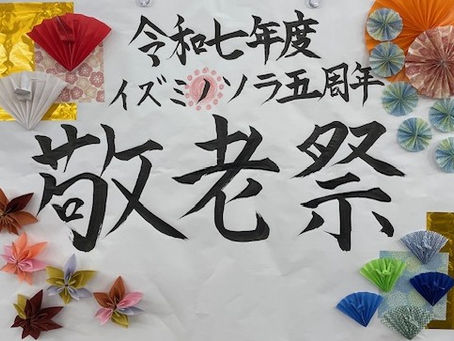 令和七年度
イズミノソラ五周年
敬老祭